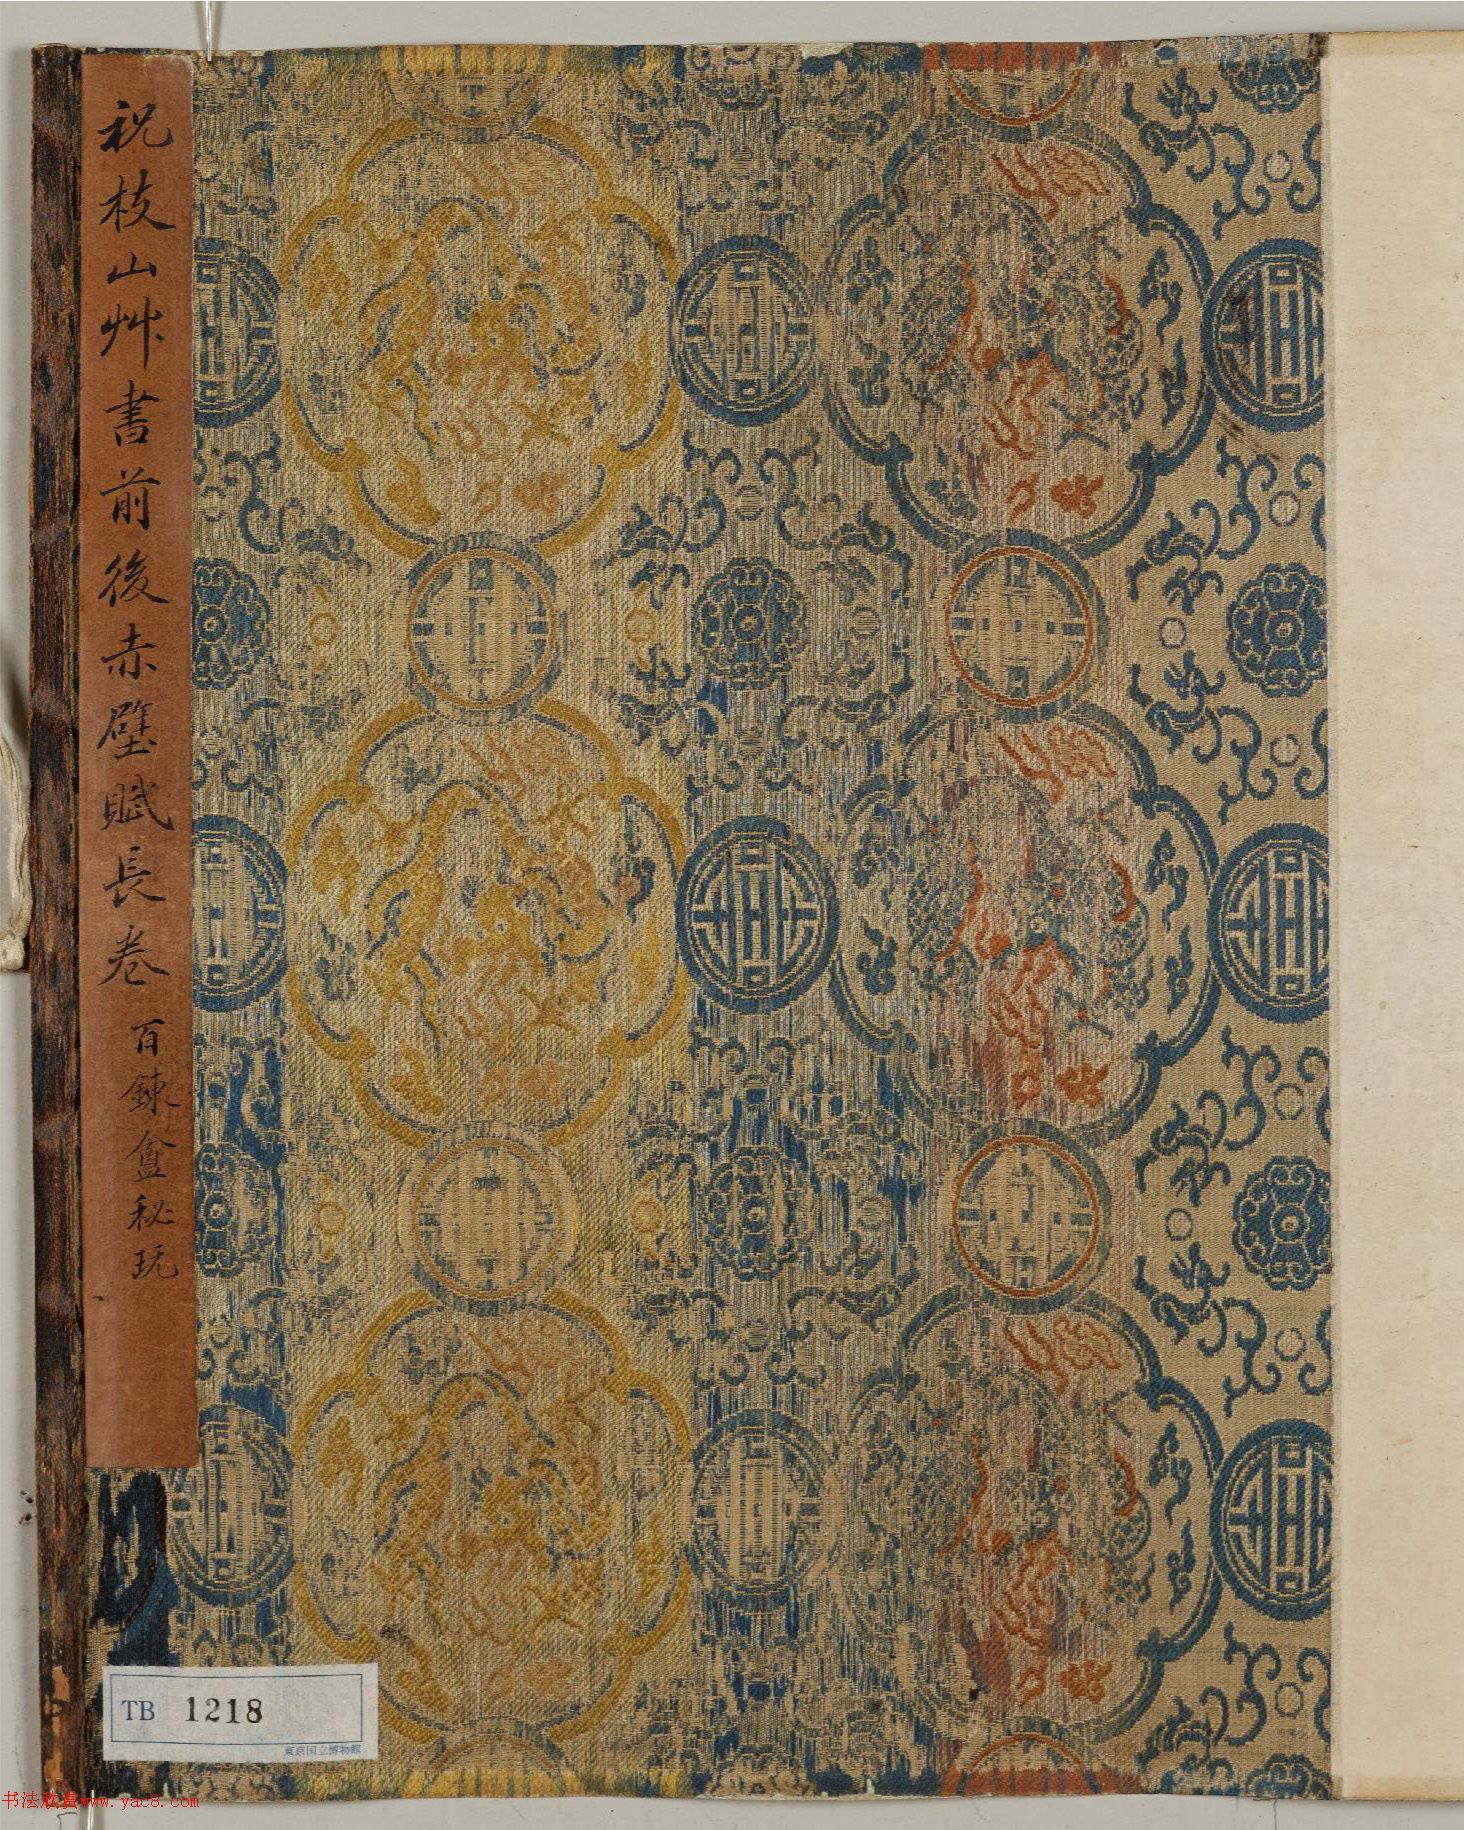 祝枝山艸書前後赤壁賦長卷
百鍊盦秘玩
TB 1218
東京国立博物館
书法欣赏www.yac8.com